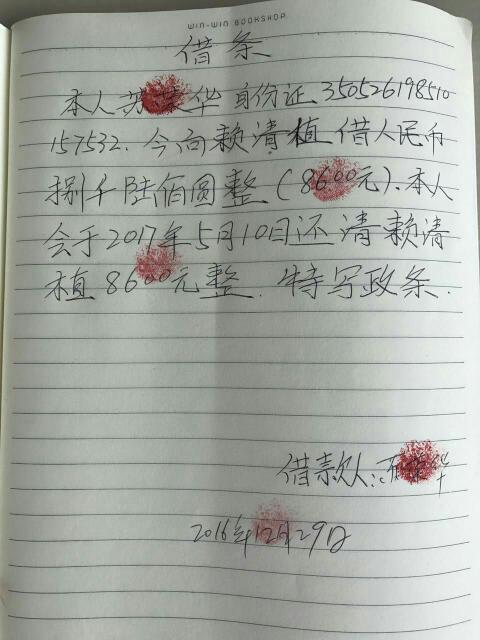 WIN-WIN BOOKSHOP
借条
本人苏荣华 身份证 350526198510
157532. 今向赖清植 借人民币
捌千陆佰圆整(8600元).本人
会于2017年5月10日还清赖清
植8600元整.特写政条.
借款人:苏荣华
2016年12月29日